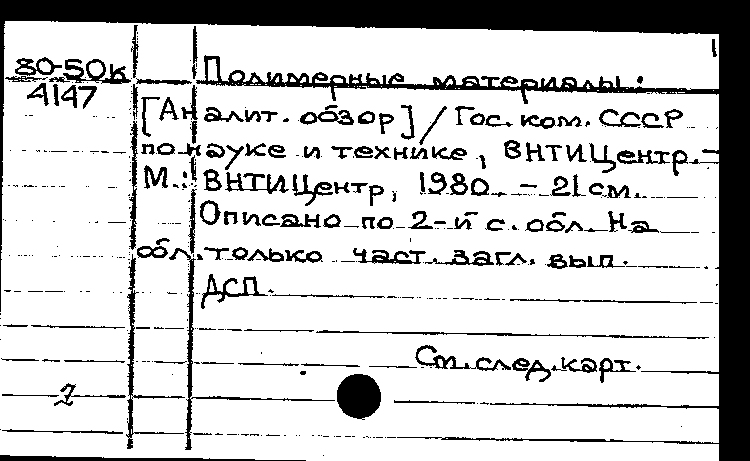 1
80-50к Полимерные материалы:
4147
[Аналит. обзор] / Гос. ком. СССР
по науке и технике, ВНТИЦентр. -
М.: ВНТИЦентр, 1980. - 21 см.
Описано по 2-й с. обл. На
обл. только част. загл. вып.
ДСП.
См. след. карт.
2